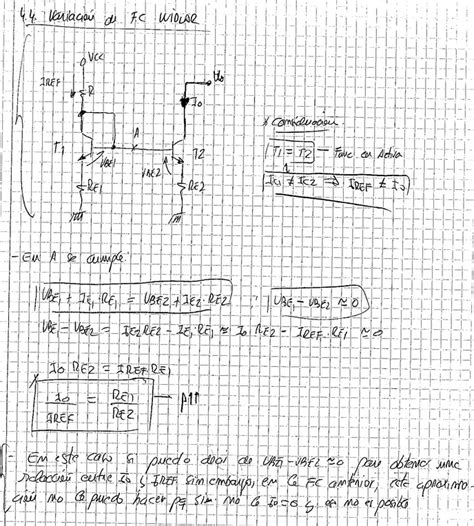 4.4. Variación de FC WIDLAR
VCC
IREF
R
Uo
Io
A
T1
VBE1
VBE2
T2
RE1
RE2
* Consideración
T1 = T2 — Func en Activa
IC1 ≠ IC2 ⇒ IREF ≠ Io
- En A se cumple:
VBE1 + IE1·RE1 = VBE2 + IE2·RE2 ; VBE1 - VBE2 ≈ 0
VBE1 - VBE2 = IE2RE2 - IE1RE1 ≈ Io RE2 - IREF·RE1 ≈ 0
Io RE2 = IREF RE1
Io / IREF = RE1 / RE2 →
- En este caso si puedo decir de VBE1-VBE2 ≈ 0 para obtener una
relación entre Io y IREF sin embargo, en FC anterior, esta aproxima-
ción no puedo hacer pq sino Io = 0 y no es posible